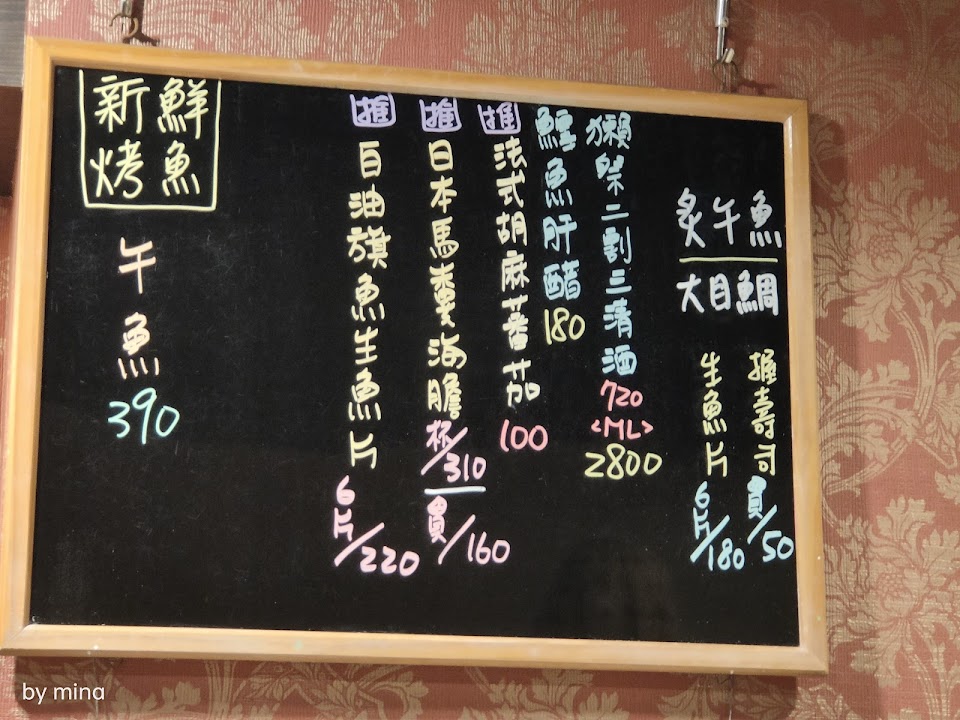 炙午魚
大目鯛
握壽司
貫/50
生魚片
6片/180
獺祭二割三清酒
720
<ML>
2800
鱈魚肝醋
180
推
法式胡麻蕃茄
100
推
日本馬糞海膽
杯/310
貫/160
推
白油旗魚生魚片
6片/220
新鮮
烤魚
午魚
390
by mina